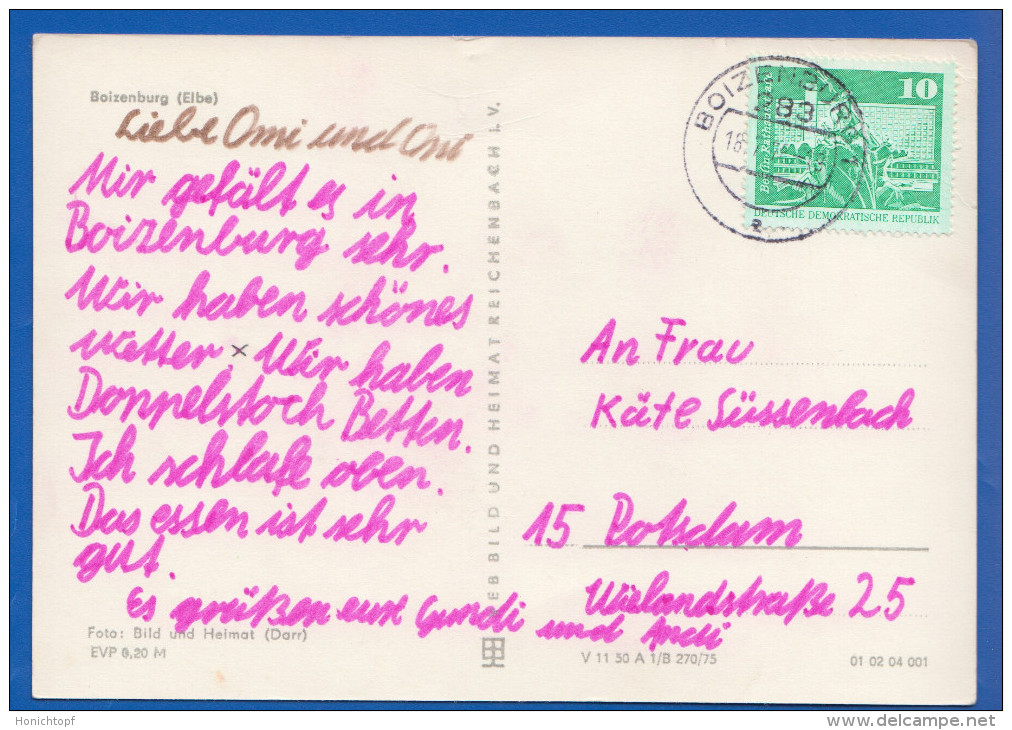 Boizenburg (Elbe)
Liebe Omi und Omi
Mir gefält es in
Boizenburg sehr.
Wir haben schönes
Wetter. x Wir haben
Doppelstoch Betten.
Ich schlafe oben.
Das essen ist sehr
gut.
Es grüßen eure Gundi
und Andi
Foto: Bild und Heimat (Darr)
EVP 0,20 M
BILD UND HEIMAT REICHENBACH I. V.
BOIZENBURG
283
10
DEUTSCHE DEMOKRATISCHE REPUBLIK
An Frau
Käte Süssenbach
15 Potsdam
Wielandstraße 25
V 11 50 A 1/B 270/75
01 02 04 001
Honichtopf
www.delcampe.net